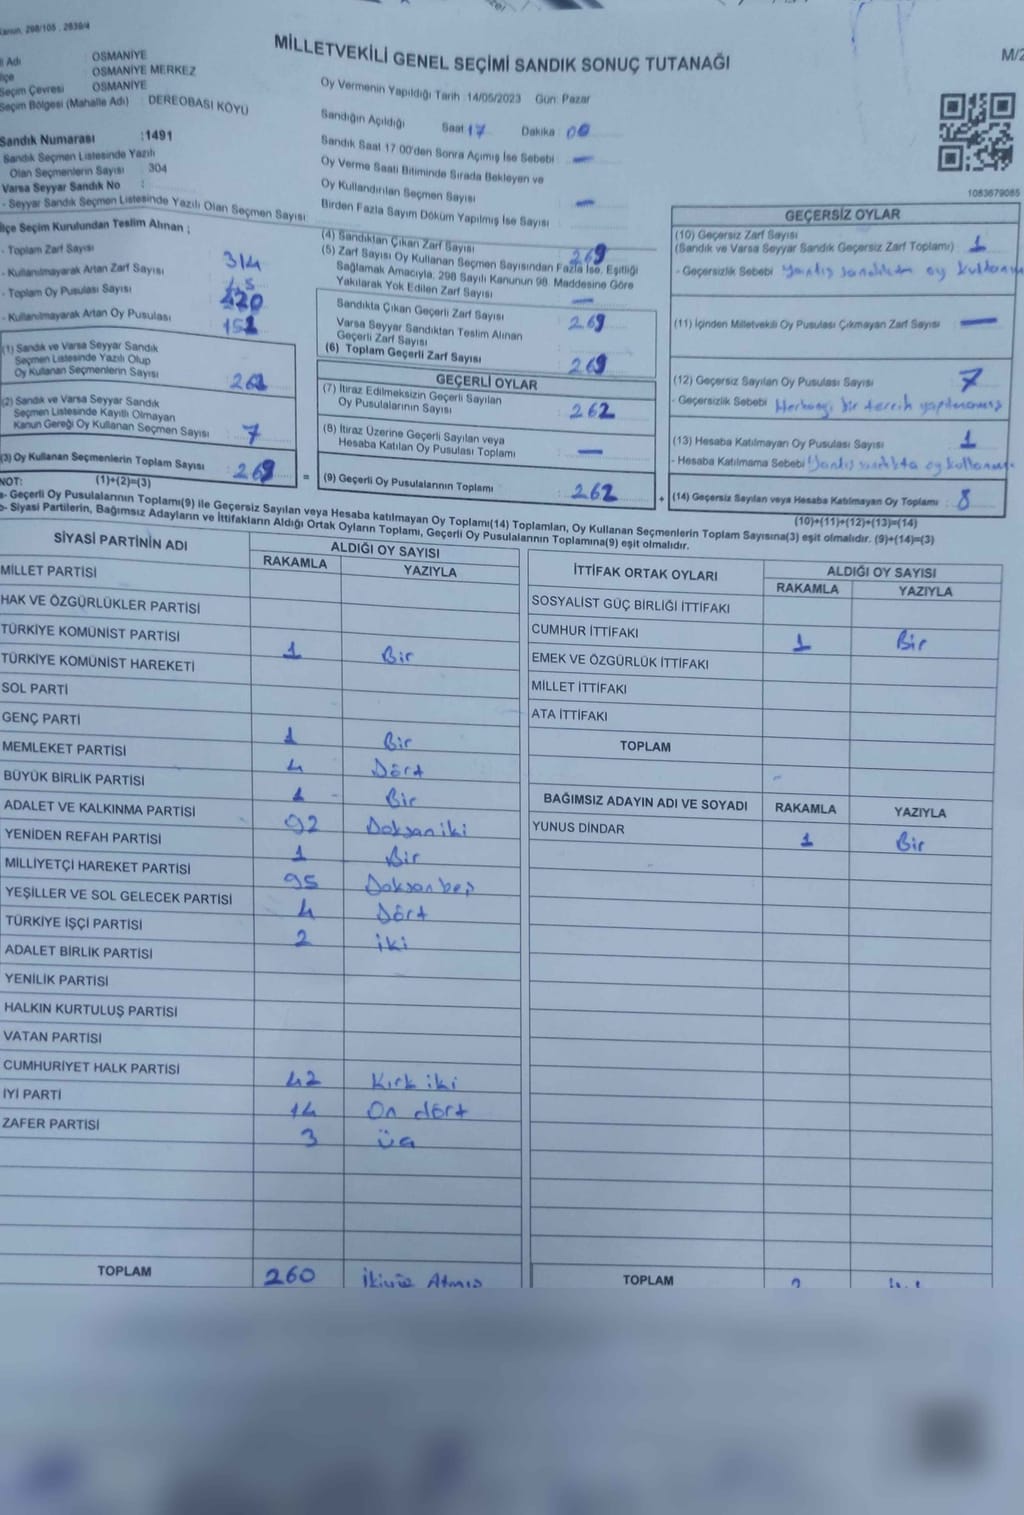 Kanun, 298/105 , 2839/4
MİLLETVEKİLİ GENEL SEÇİMİ SANDIK SONUÇ TUTANAĞI
M/2
İl Adı : OSMANİYE
İlçe : OSMANİYE MERKEZ
Seçim Çevresi : OSMANİYE
Seçim Bölgesi (Mahalle Adı) : DEREOBASI KÖYÜ
Sandık Numarası :1491
Sandık Seçmen Listesinde Yazılı
Olan Seçmenlerin Sayısı : 304
Varsa Seyyar Sandık No :
- Seyyar Sandık Seçmen Listesinde Yazılı Olan Seçmen Sayısı :
Oy Vermenin Yapıldığı Tarih :14/05/2023 Gün: Pazar
Sandığın Açıldığı Saat : 17 Dakika : 00
Sandık Saat 17 00'den Sonra Açımış İse Sebebi : —
Oy Verme Saati Bitiminde Sırada Bekleyen ve
Oy Kullandırılan Seçmen Sayısı : —
Birden Fazla Sayım Döküm Yapılmış İse Sayısı :
1083679085
İlçe Seçim Kurulundan Teslim Alınan ;
- Toplam Zarf Sayısı : 314
- Kullanılmayarak Artan Zarf Sayısı :
- Toplam Oy Pusulası Sayısı : 420
- Kullanılmayarak Artan Oy Pusulası :
(1) Sandık ve Varsa Seyyar Sandık
Seçmen Listesinde Yazılı Olup
Oy Kullanan Seçmenlerin Sayısı :
(2) Sandık ve Varsa Seyyar Sandık
Seçmen Listesinde Kayıtlı Olmayan
Kanun Gereği Oy Kullanan Seçmen Sayısı : 7
(3) Oy Kullanan Seçmenlerin Toplam Sayısı : 269
(1)+(2)=(3)
(4) Sandıktan Çıkan Zarf Sayısı : 269
(5) Zarf Sayısı Oy Kullanan Seçmen Sayısından Fazla İse, Eşitliği
Sağlamak Amacıyla, 298 Sayılı Kanunun 98. Maddesine Göre
Yakılarak Yok Edilen Zarf Sayısı : —
Sandıkta Çıkan Geçerli Zarf Sayısı : 269
Varsa Seyyar Sandıktan Teslim Alınan
Geçerli Zarf Sayısı :
(6) Toplam Geçerli Zarf Sayısı : 269
GEÇERLİ OYLAR
(7) İtiraz Edilmeksizin Geçerli Sayılan
Oy Pusulalarının Sayısı : 262
(8) İtiraz Üzerine Geçerli Sayılan veya
Hesaba Katılan Oy Pusulası Toplamı : —
= (9) Geçerli Oy Pusulalarının Toplamı : 262
GEÇERSİZ OYLAR
(10) Geçersiz Zarf Sayısı
(Sandık ve Varsa Seyyar Sandık Geçersiz Zarf Toplamı) : 1
- Geçersizlik Sebebi : oy
(11) İçinden Milletvekili Oy Pusulası Çıkmayan Zarf Sayısı : —
(12) Geçersiz Sayılan Oy Pusulası Sayısı : 7
- Geçersizlik Sebebi : Herhangi bir tercih yapılmamış
(13) Hesaba Katılmayan Oy Pusulası Sayısı : 1
- Hesaba Katılmama Sebebi : Yanlış sandıkta oy
+ (14) Geçersiz Sayılan veya Hesaba Katılmayan Oy Toplamı : 8
(10)+(11)+(12)+(13)=(14)
NOT:
a- Geçerli Oy Pusulalarının Toplamı(9) ile Geçersiz Sayılan veya Hesaba katılmayan Oy Toplamı(14) Toplamları, Oy Kullanan Seçmenlerin Toplam Sayısına(3) eşit olmalıdır. (9)+(14)=(3)
b- Siyasi Partilerin, Bağımsız Adayların ve İttifakların Aldığı Ortak Oyların Toplamı, Geçerli Oy Pusulalarının Toplamına(9) eşit olmalıdır.
SİYASİ PARTİNİN ADI ALDIĞI OY SAYISI
RAKAMLA YAZIYLA
MİLLET PARTİSİ
HAK VE ÖZGÜRLÜKLER PARTİSİ
TÜRKİYE KOMÜNİST PARTİSİ 1 Bir
TÜRKİYE KOMÜNİST HAREKETİ
SOL PARTİ
GENÇ PARTİ 1 Bir
MEMLEKET PARTİSİ 4 Dört
BÜYÜK BİRLİK PARTİSİ 1 Bir
ADALET VE KALKINMA PARTİSİ 92 Doksaniki
YENİDEN REFAH PARTİSİ 1 Bir
MİLLİYETÇİ HAREKET PARTİSİ 95 Doksanbeş
YEŞİLLER VE SOL GELECEK PARTİSİ 4 Dört
TÜRKİYE İŞÇİ PARTİSİ 2 iki
ADALET BİRLİK PARTİSİ
YENİLİK PARTİSİ
HALKIN KURTULUŞ PARTİSİ
VATAN PARTİSİ
CUMHURİYET HALK PARTİSİ 42 Kırk iki
İYİ PARTİ 14 On dört
ZAFER PARTİSİ 3 üç
TOPLAM 260 İkiyüz Atmış
İTTİFAK ORTAK OYLARI ALDIĞI OY SAYISI
RAKAMLA YAZIYLA
SOSYALİST GÜÇ BİRLİĞİ İTTİFAKI
CUMHUR İTTİFAKI 1 Bir
EMEK VE ÖZGÜRLÜK İTTİFAKI
MİLLET İTTİFAKI
ATA İTTİFAKI
TOPLAM
BAĞIMSIZ ADAYIN ADI VE SOYADI RAKAMLA YAZIYLA
YUNUS DİNDAR 1 Bir
TOPLAM